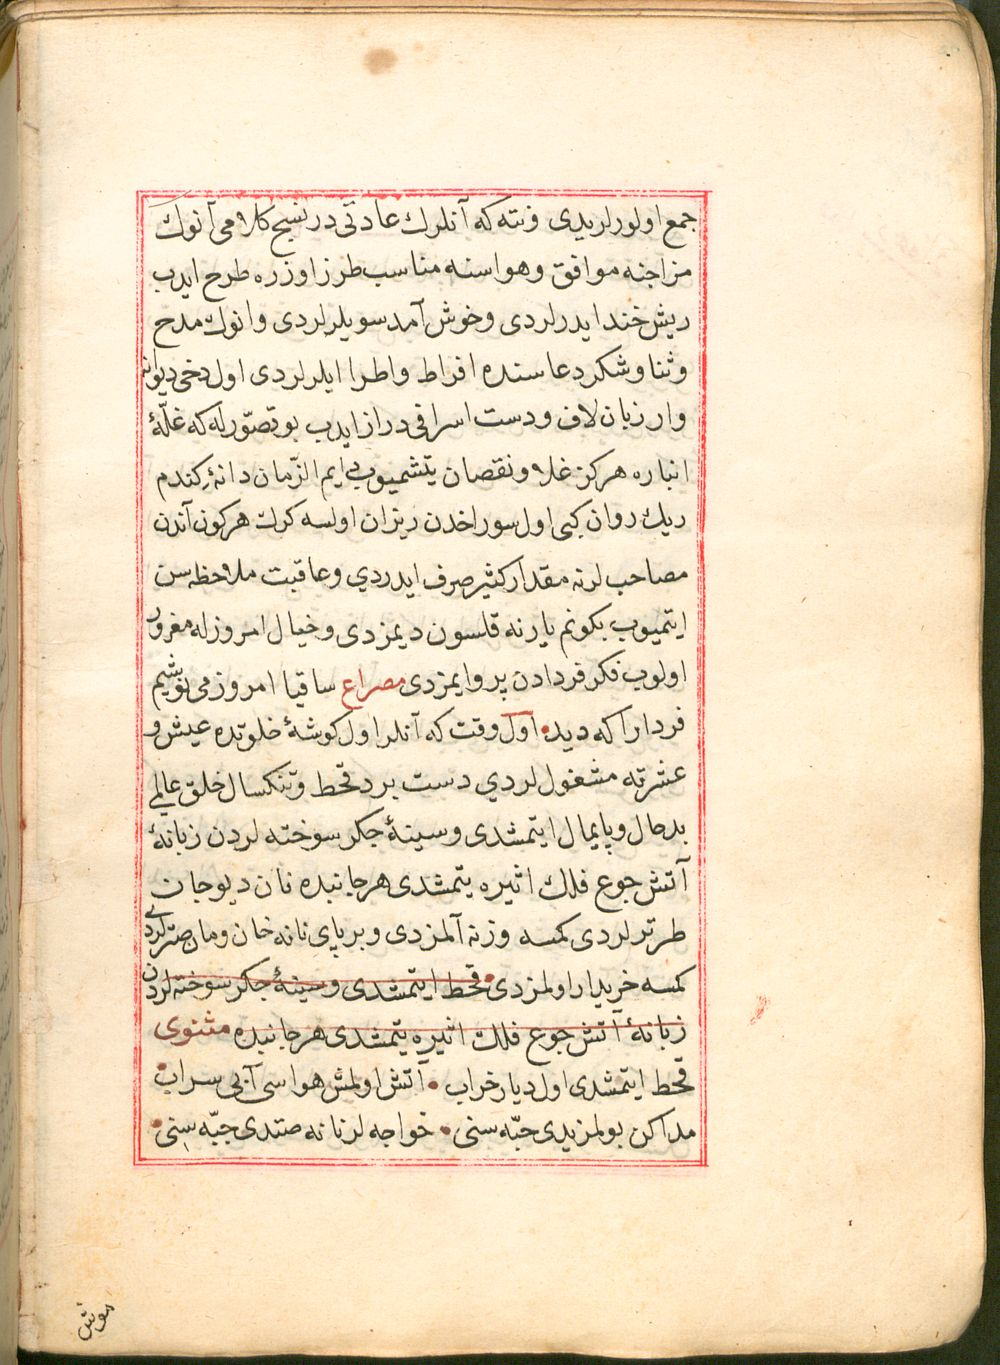 جمع اولورلریدی وننه که آنلرك عادتی در نسیج کلامی آنوك
مزاجنه موافق وهواسنه مناسب طرز اوزره طرح ایدب
ریش خند ایدرلردی وخوش آمد سویلرلردی وانوك مدح
وثنا وشکر دعاسنده افراط واطرا ایلرلردی اول دخی دیوانه
وار زبان لاف ودست اسرافی دراز ایدب بو تصوّرله که غلّهٔ
انباره هرکز غلا ونقصان یتشمیوب دایم الزّمان دانهٔ کندم
ریك روان کبی اول سوراخدن ریزان اولسه کرك هرکون آندن
مصاحب لرنه مقدار کثیر صرف ایدردی وعاقبت ملاحظه سن
ایتمیوب بکونم یارنه قلسون دیمزدی وخیال امروزله مغرور
اولوب فکر فردادن پروا ایمزدی مصراع ساقیا امروز می نوشیم
فردا را که دید اول وقت که آنلر اول کوشهٔ خلوتده عیش و
عشرته مشغول لردی دست برد قحط وتنکسال خلق عالمی
بدحال وپایمال ایتمشدی وسینهٔ جکر سوخته لردن زبانهٔ
آتش جوع فلك اثیره یتمشدی هر جانبده نان دیو جان
طرترلردی کمسه وزنه آلمزدی وبر پای نانه خان ومان صترلردی
کمسه خریدار اولمزدی قحط ایتمشدی وسینهٔ جکر سوخته لردن
زبانهٔ آتش جوع فلك اثیره یتمشدی هر جانبده مثنوی
قحط ایتمشدی اول دیار خراب آتش اولمش هواسی آبی سراب
مداکن بولمزیدی حبّه سنی خواجه لر نانه صتدی جبّه سنی
موش